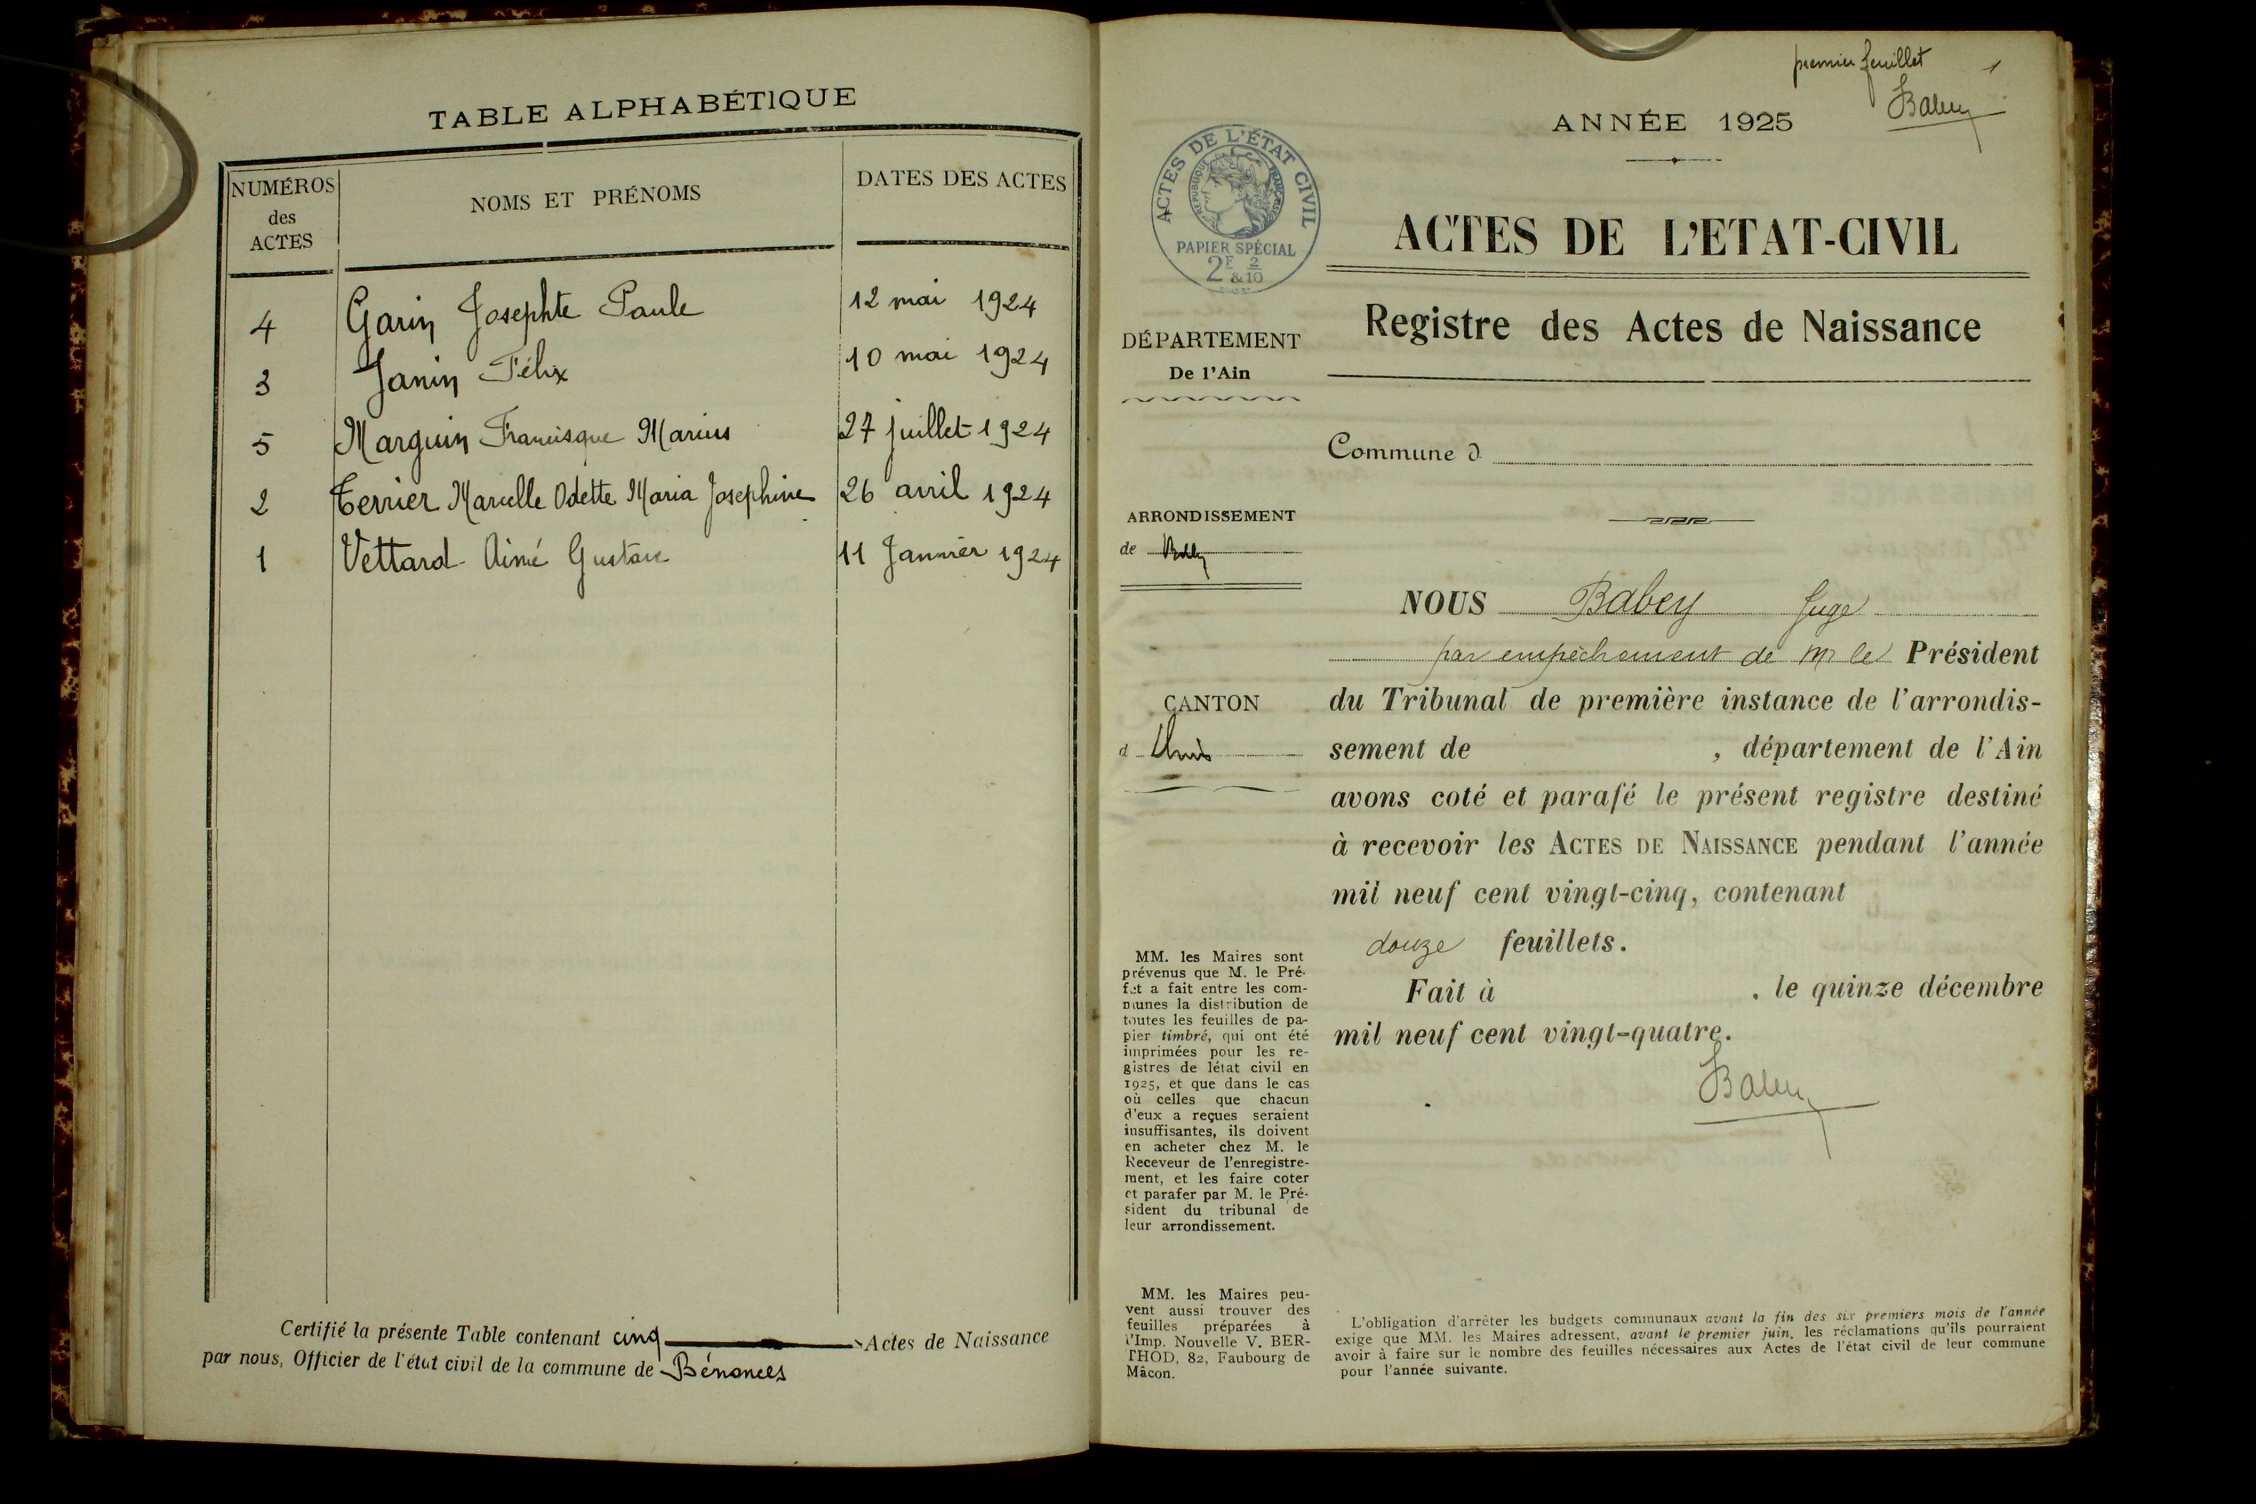 TABLE ALPHABÉTIQUE
NUMÉROS
des
ACTES
NOMS ET PRÉNOMS
DATES DES ACTES
4 Garin Josephte Paule 12 mai 1924
3 Janin Félix 10 mai 1924
5 Marguin Francisque Marius 27 juillet 1924
2 Terrier Marcelle Odette Maria Josephine 26 avril 1924
1 Vettard Aimé Gustave 11 Janvier 1924
Certifié la présente Table contenant cinq Actes de Naissance
par nous, Officier de l'état civil de la commune de Bénonces
premier feuillet 1
Babey
ANNÉE 1925
ACTES DE L'ÉTAT CIVIL
RÉPUBLIQUE FRANÇAISE
PAPIER SPÉCIAL
2E 2
& 10
ACTES DE L'ETAT-CIVIL
Registre des Actes de Naissance
DÉPARTEMENT
De l'Ain
Commune d
ARRONDISSEMENT
de Belley
CANTON
d
NOUS Babey Juge
par empêchement de Mr le Président
du Tribunal de première instance de l'arrondis-
sement de , département de l'Ain
avons coté et parafé le présent registre destiné
à recevoir les ACTES DE NAISSANCE pendant l'année
mil neuf cent vingt-cinq, contenant
douze feuillets.
Fait à , le quinze décembre
mil neuf cent vingt-quatre.
Babey
MM. les Maires sont
prévenus que M. le Pré-
fet a fait entre les com-
munes la distribution de
toutes les feuilles de pa-
pier timbré, qui ont été
imprimées pour les re-
gistres de létat civil en
1925, et que dans le cas
où celles que chacun
d'eux a reçues seraient
insuffisantes, ils doivent
en acheter chez M. le
Receveur de l'enregistre-
ment, et les faire coter
et parafer par M. le Pré-
sident du tribunal de
leur arrondissement.
MM. les Maires peu-
vent aussi trouver des
feuilles préparées à
l'Imp. Nouvelle V. BER-
THOD, 82, Faubourg de
Mâcon.
L'obligation d'arrêter les budgets communaux avant la fin des six premiers mois de l'année
exige que MM. les Maires adressent, avant le premier juin, les réclamations qu'ils pourraient
avoir à faire sur le nombre des feuilles nécessaires aux Actes de l'état civil de leur commune
pour l'année suivante.